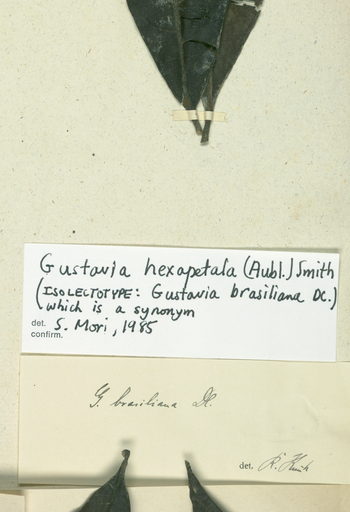 Gustavia hexapetala (Aubl.) Smith
(ISOLECTOTYPE: Gustavia brasiliana DC.)
which is a synonym
det. S. Mori, 1985
confirm.
G. brasiliana DC.
det. R.